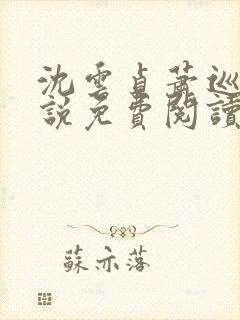 沈雲貞蕭巡
說免費閱讀
蘇亦落